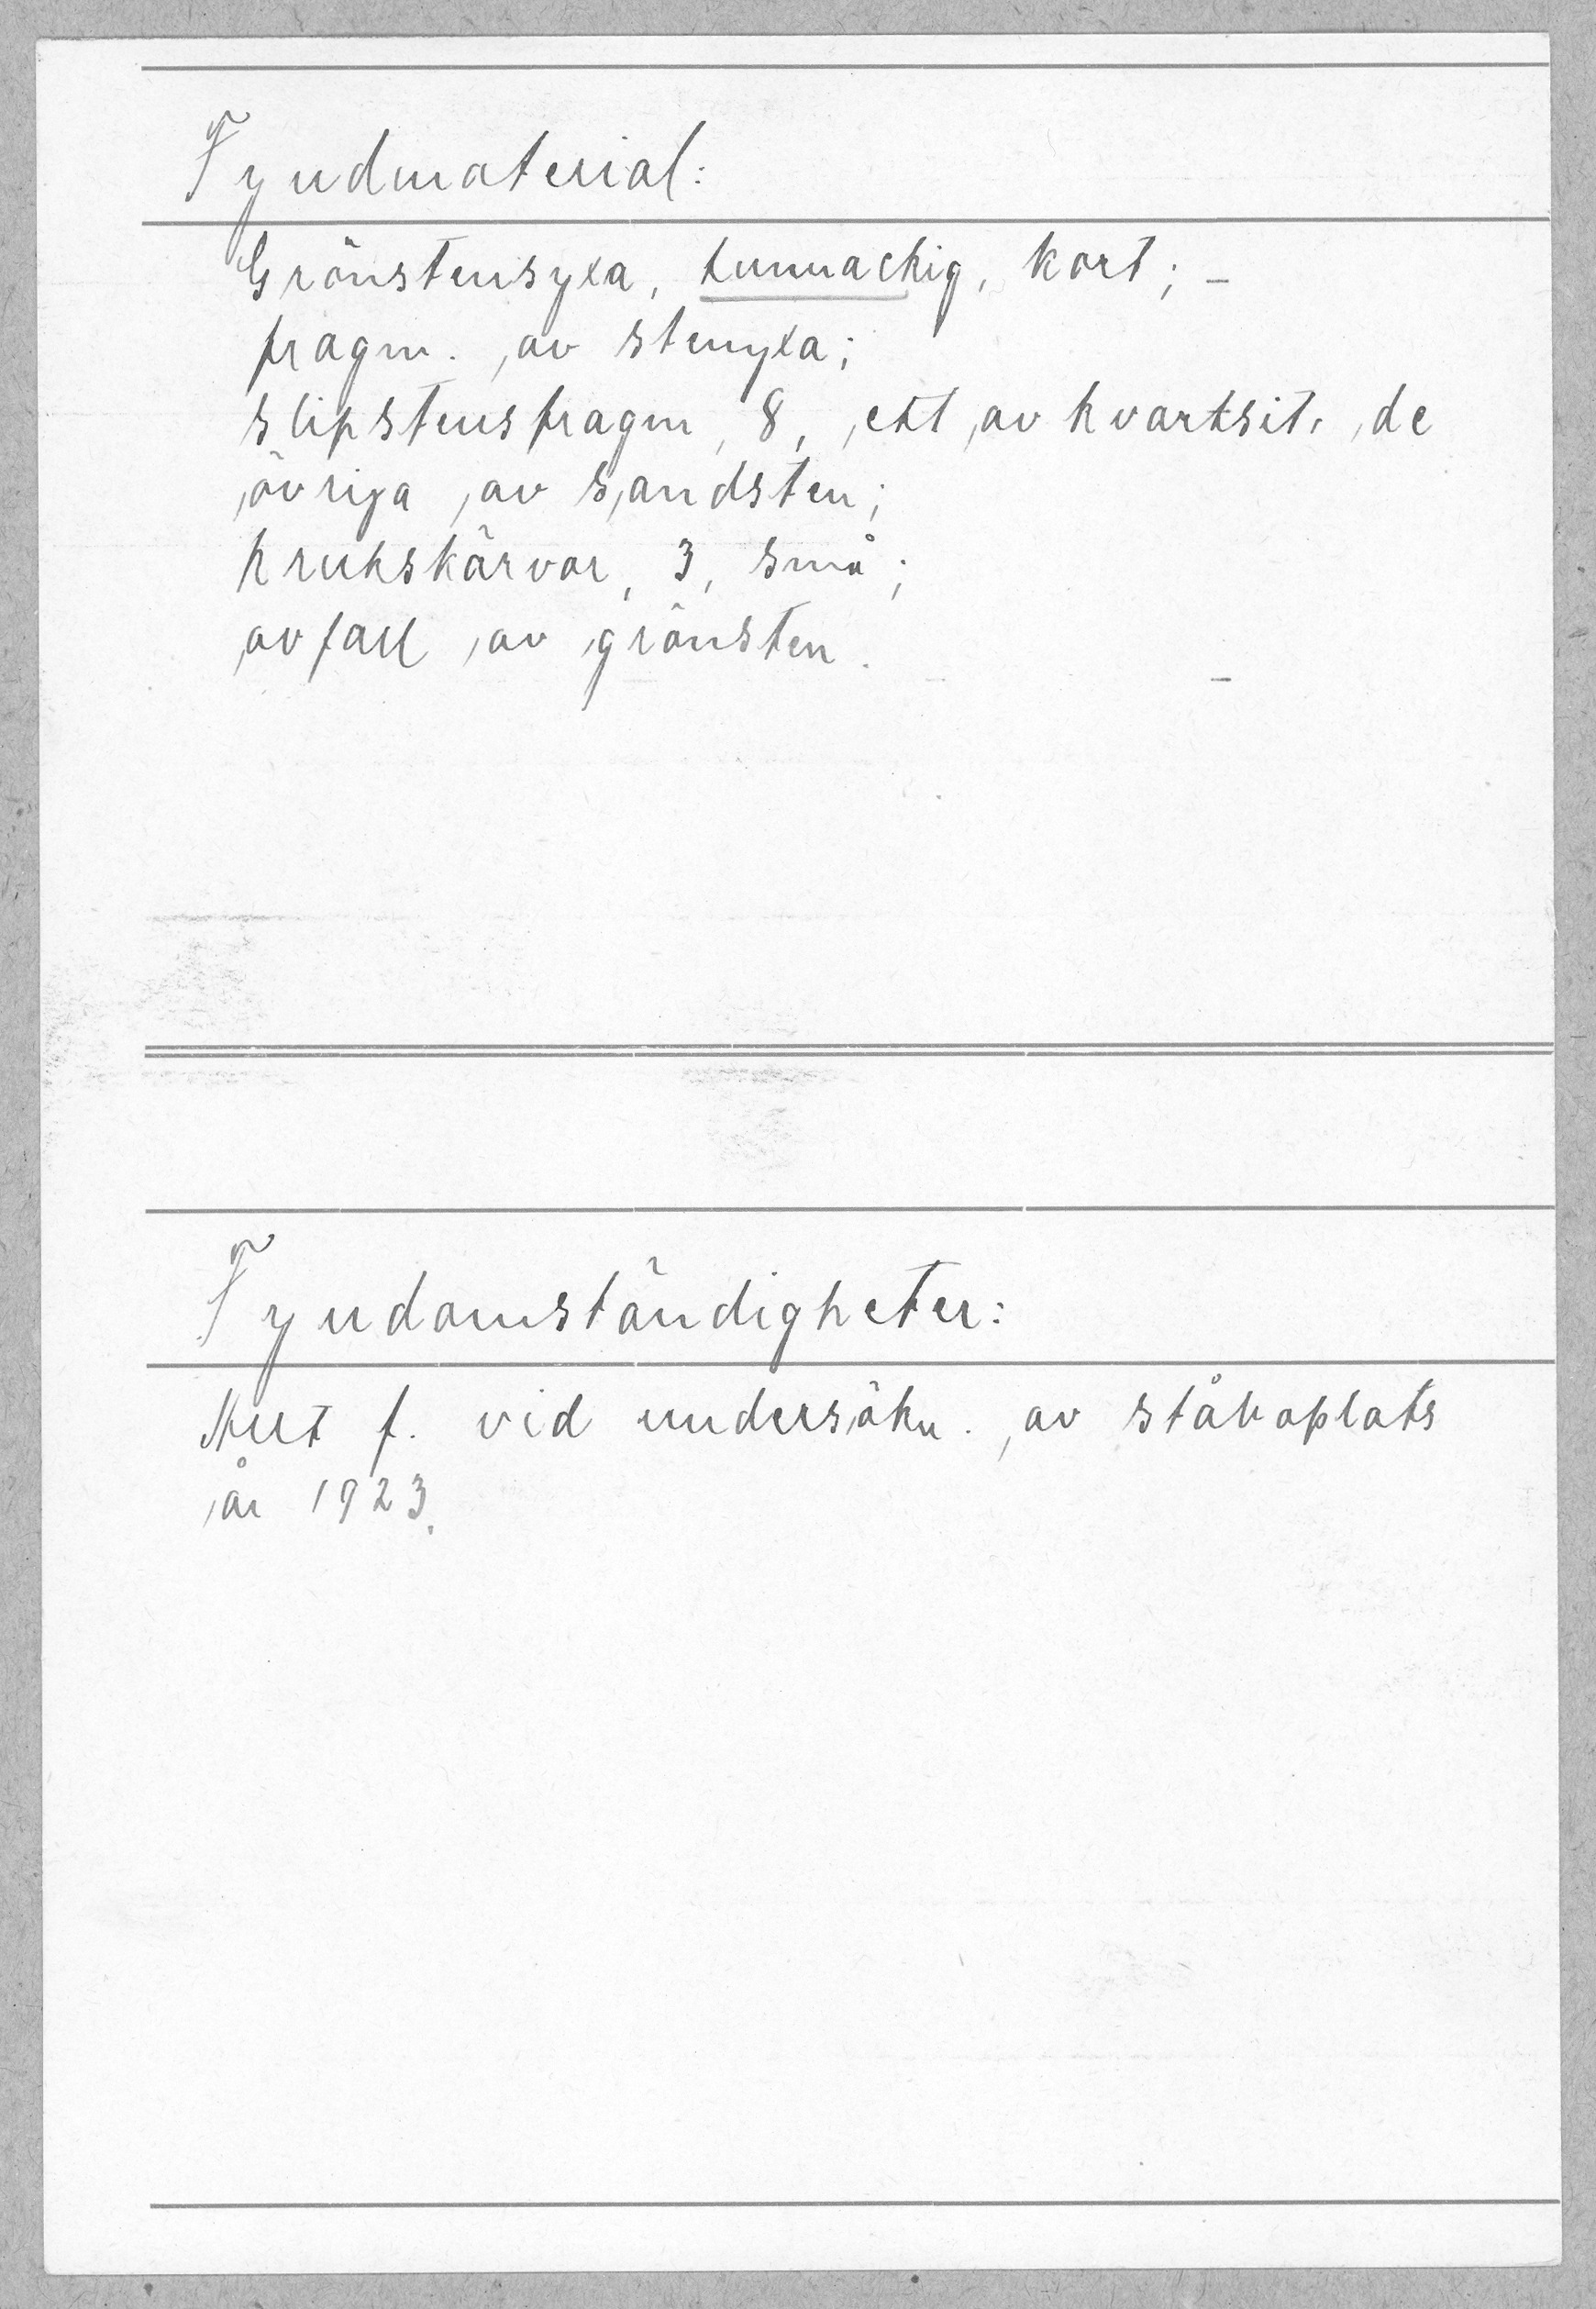 Fyndmaterial:
Grönstensyxa, tunnackig, kort; –
fragm. av stenyxa;
slipstensfragm, 8, ett av kvartsit, de
övriga av sandsten;
krukskärvor, 3, små;
avfall av grönsten.
Fyndomständigheter:
Allt f. vid undersökn. av ståboplats
år 1923.